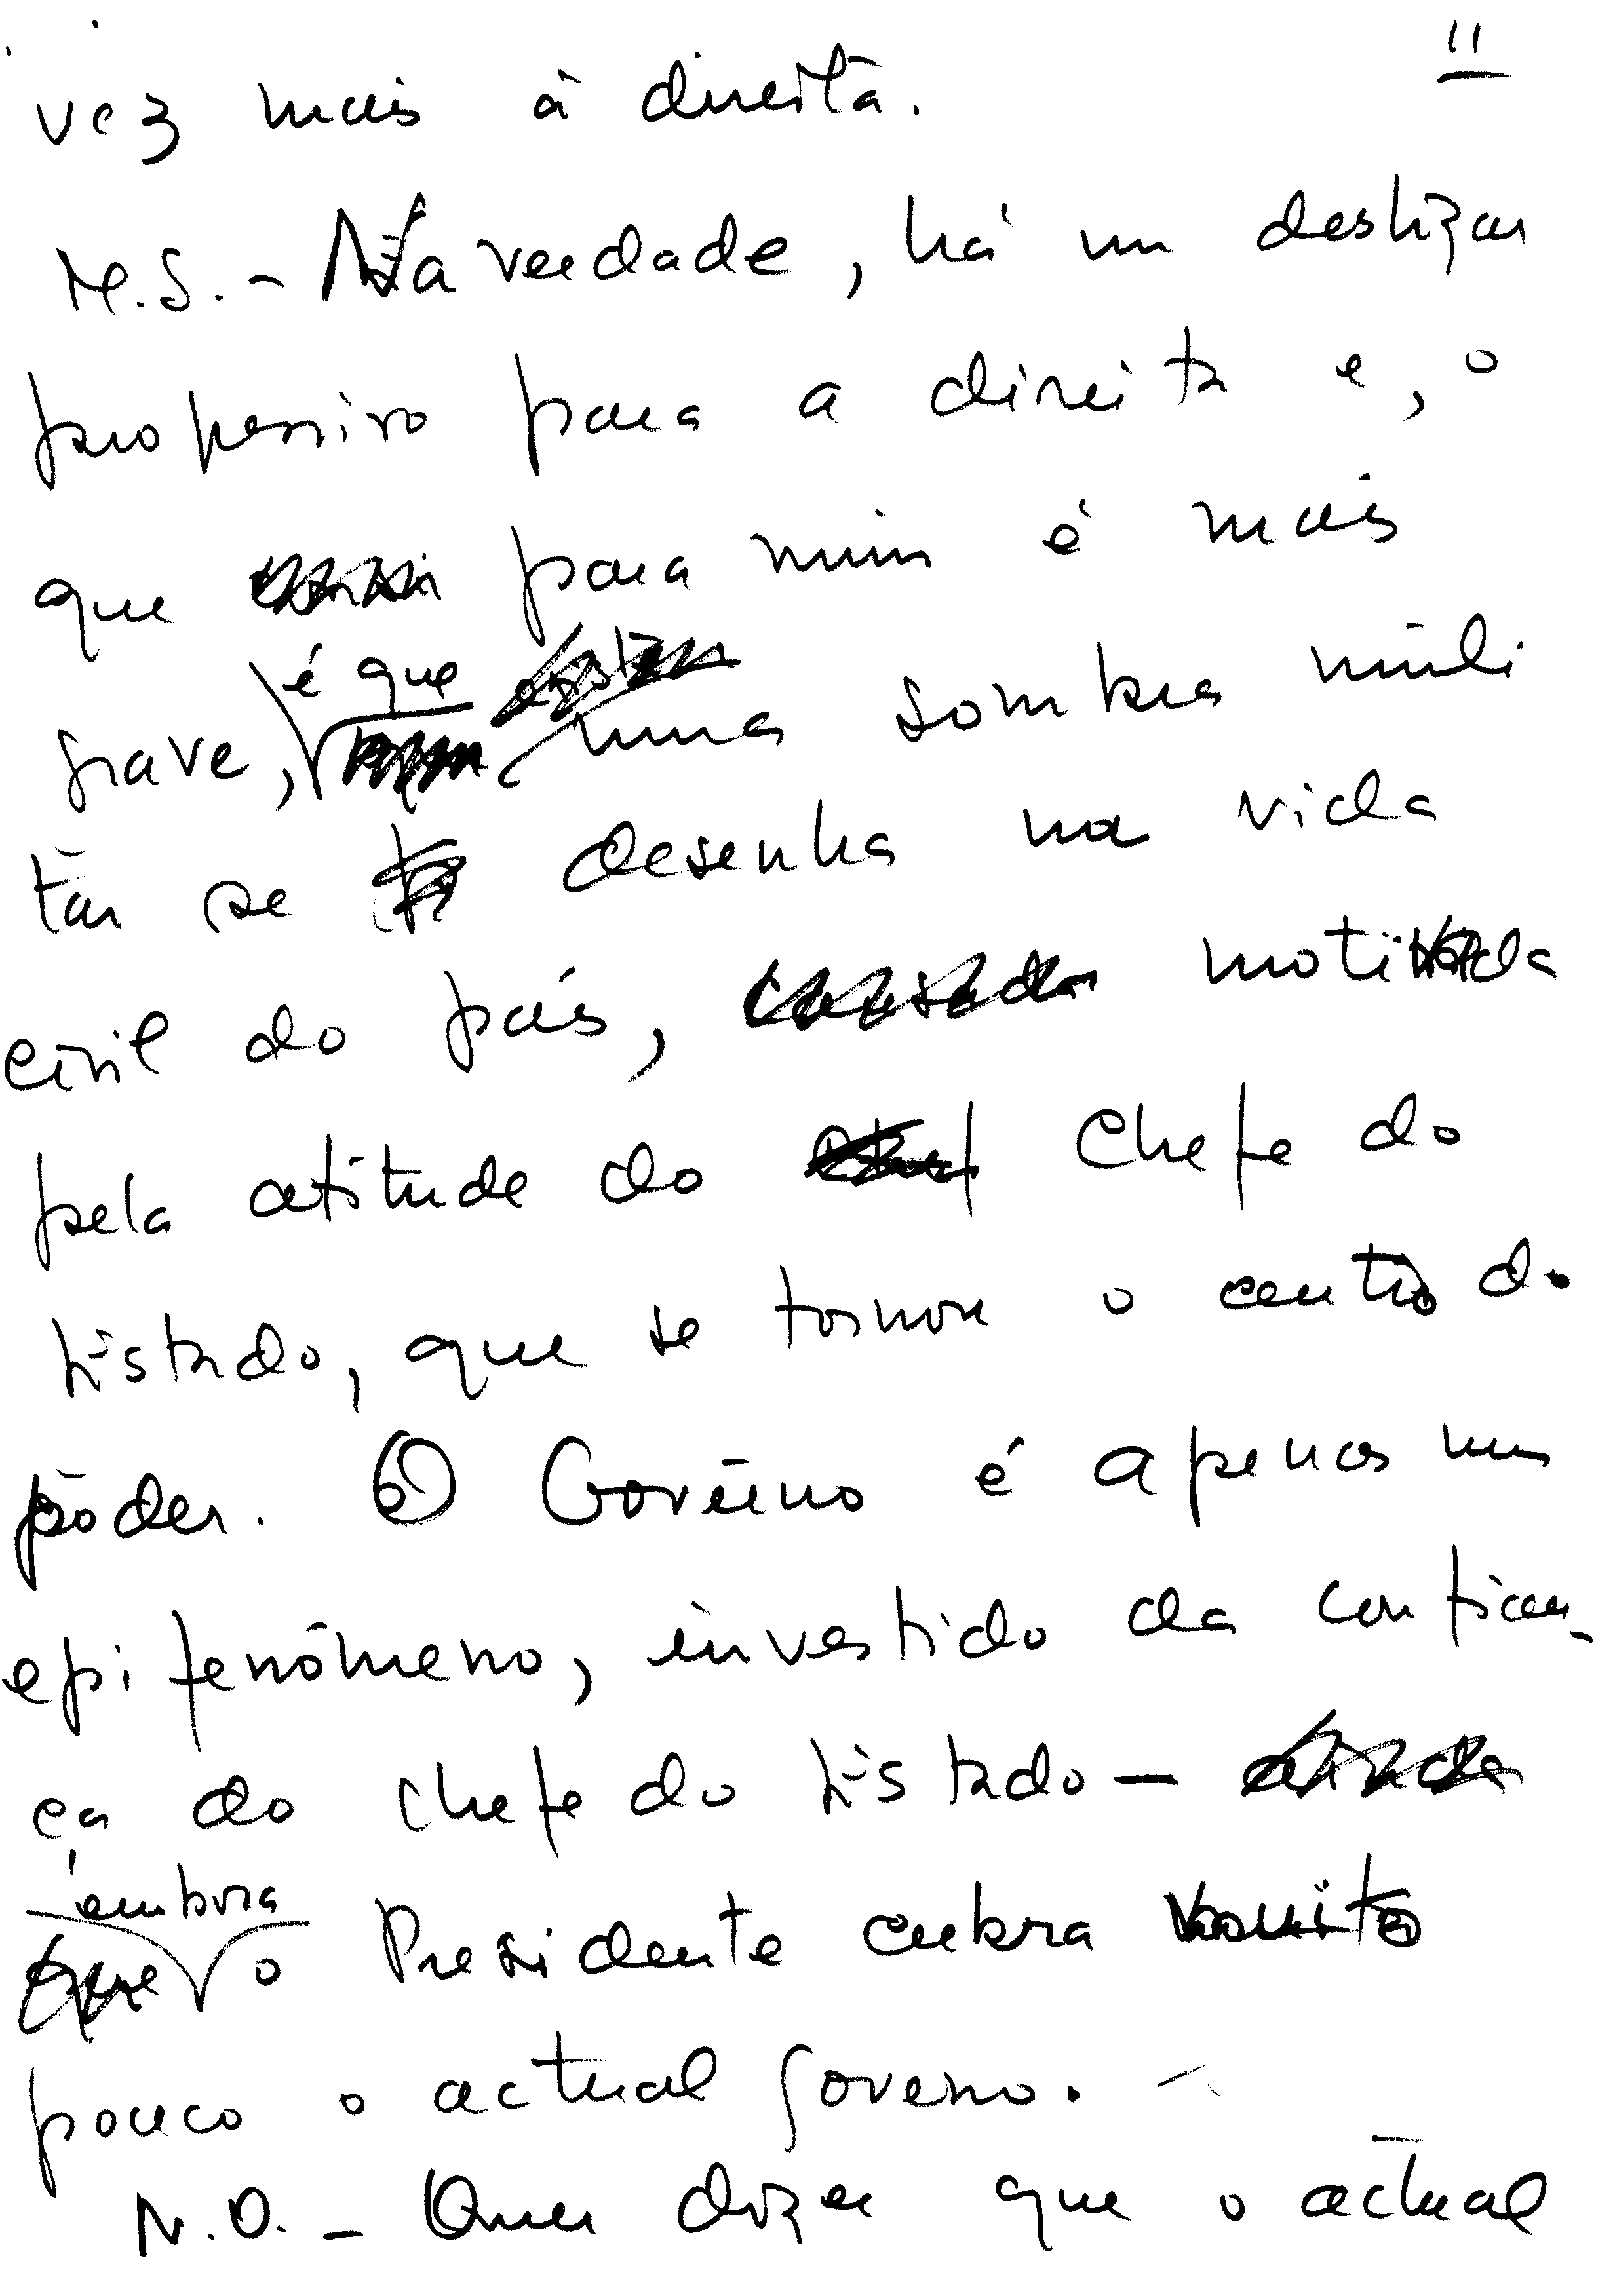 11
vez mais à direita.
M.S. - Na verdade, há um deslizar
progressivo para a direita e, o
que para mim é mais
grave, é que uma sombra mili
tar se desenha na vida
civil do país, motivada
pela atitude do Chefe do
Estado, que se tornou o centro do
poder. O Govêrno é apenas um
epifenómeno, investido da confian-
ça do Chefe do Estado -
embora o Presidente cubra muito
pouco o actual governo.
N.O. - Quer dizer que o actual